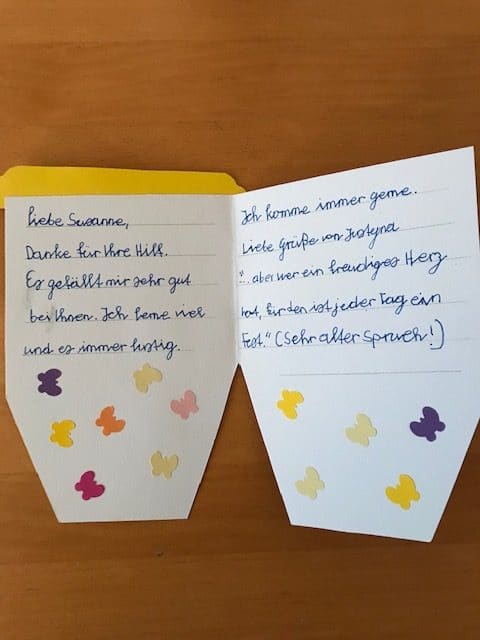 Liebe Susanne,
Danke für Ihre Hilf.
Es gefällt mir sehr gut
bei Ihnen. Ich lerne viel
und es immer lustig.
Ich komme immer gerne.
Liebe Grüße von Justyna
"... aber wer ein freudiges Herz
hat, für den ist jeder Tag ein
Fest." (Sehr alter Spruch!)